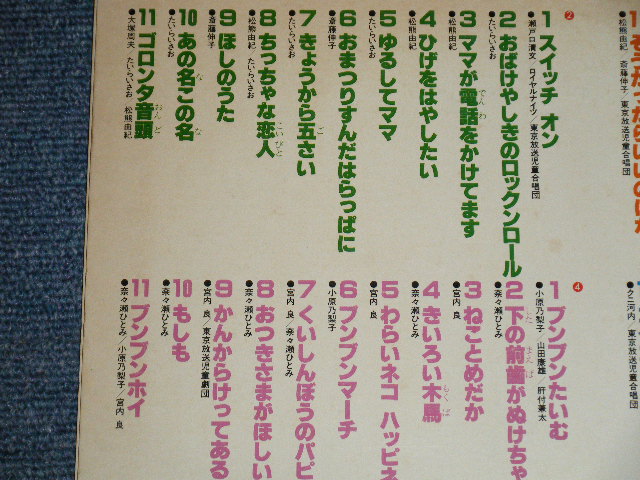 ②
1 スイッチ オン
●瀬戸口清文 ロイヤルナイツ/東京放送児童合唱団
2 おばけやしきのロックンロール
●たいらいさお
3 ママが電話をかけてます
でんわ
●松熊由紀
4 ひげをはやしたい
●松熊由紀
5 ゆるしてママ
●たいらいさお
6 おまつりすんだはらっぱに
●斎藤伸子
7 きょうから五さい
ご
●たいらいさお
8 ちっちゃな恋人
こいびと
●松熊由紀 たいらいさお
9 ほしのうた
●斎藤伸子
10 あの名この名
な な
●たいらいさお
11 ゴロンタ音頭
おんど
●大塚周夫 たいらいさお 松熊由紀
松熊由紀 斎藤伸子 東京放送児童合唱団
④
1 ブンブンたいむ
●小原乃梨子 山田康雄 肝付兼太
2 下の前歯がぬけちゃ
した まえば
●奈々瀬ひとみ
3 ねことめだか
●宮内 良
4 きいろい木馬
もくば
●奈々瀬ひとみ
5 わらいネコ ハッピネ
●宮内 良
6 ブンブンマーチ
●小原乃梨子
7 くいしんぼうのパピ
●宮内 良/奈々瀬ひとみ
8 おつきさまがほしい
●奈々瀬ひとみ
9 かんからけってある
●宮内 良/東京放送児童劇団
10 もしも
●奈々瀬ひとみ
11 ブンブンホイ
●奈々瀬ひとみ/小原乃梨子/宮内 良
●クニ河内 東京放送児童合唱団